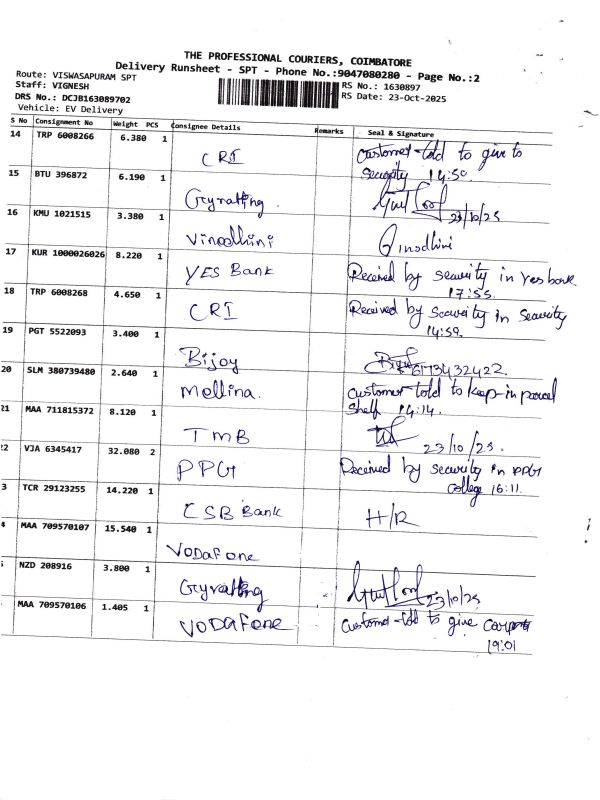 THE PROFESSIONAL COURIERS, COIMBATORE
Delivery Runsheet - SPT - Phone No.:9047080280 - Page No.:2
Route: VISWASAPURAM SPT
Staff: VIGNESH
DRS No.: DCJB163089702
Vehicle: EV Delivery
RS No.: 1630897
RS Date: 23-Oct-2025
S No Consignment No Weight PCS Consignee Details Remarks Seal & Signature
14 TRP 6008266 6.380 1 CRI Customer told to give to
security 14:50
15 BTU 396872 6.190 1 23/10/25
16 KMU 1021515 3.380 1 Vinodhini Vinodhini
17 KUR 1000026026 8.220 1 YES Bank Received by security in yes bank
17:55.
18 TRP 6008268 4.650 1 CRI Received by security in security
14:59.
19 PGT 5522093 3.400 1 Bijoy
20 SLM 380739480 2.640 1 Mellina. Customer told to keep in parcel
shelf 14:14.
21 MAA 711815372 8.120 1 TMB 23/10/25.
22 VJA 6345417 32.080 2 PPG Received by security in PPG
college 16:11
3 TCR 29123255 14.220 1 CSB Bank H/R
4 MAA 709570107 15.540 1 Vodafone
NZD 208916 3.800 1 23/10/25
MAA 709570106 1.405 1 Vodafone Customer told to give
19:01